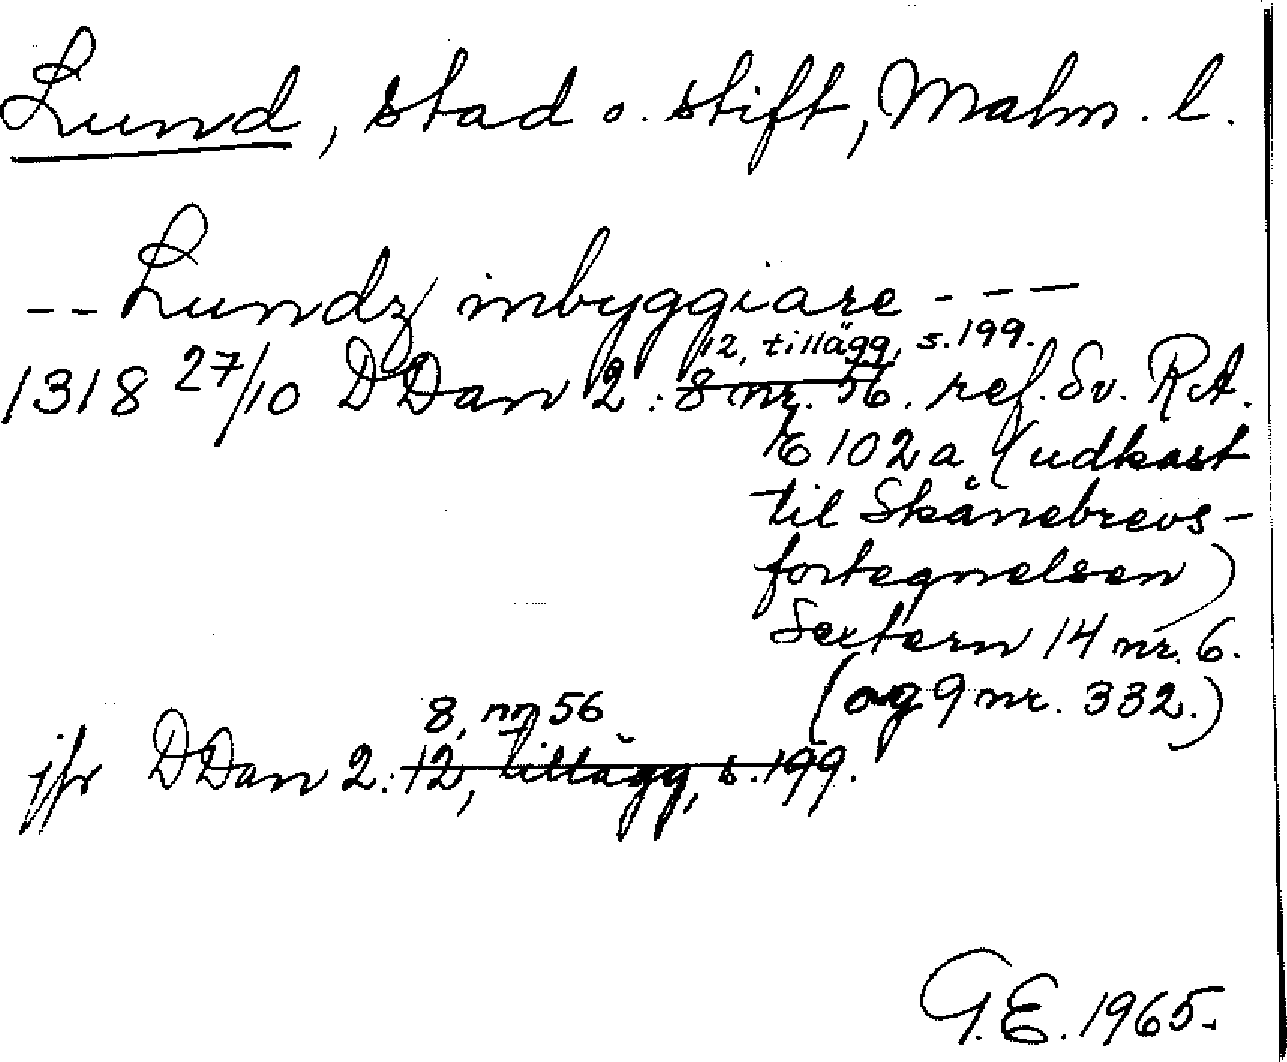 Lund, stad o. stift, Malm. l.
-- Lundz inbyggiare ---
12, tillägg, s.199.
1318 27/10 DDan 2: 8 nr. 56. ref. Sv. RA.
E 102 a (udkast
til Skånebrevs-
fortegnelsen)
Sextern 14 nr. 6.
(og 9 nr. 332.)
8, nr 56
jfr DDan 2: 12, tillägg, s. 199.
G.E. 1965.